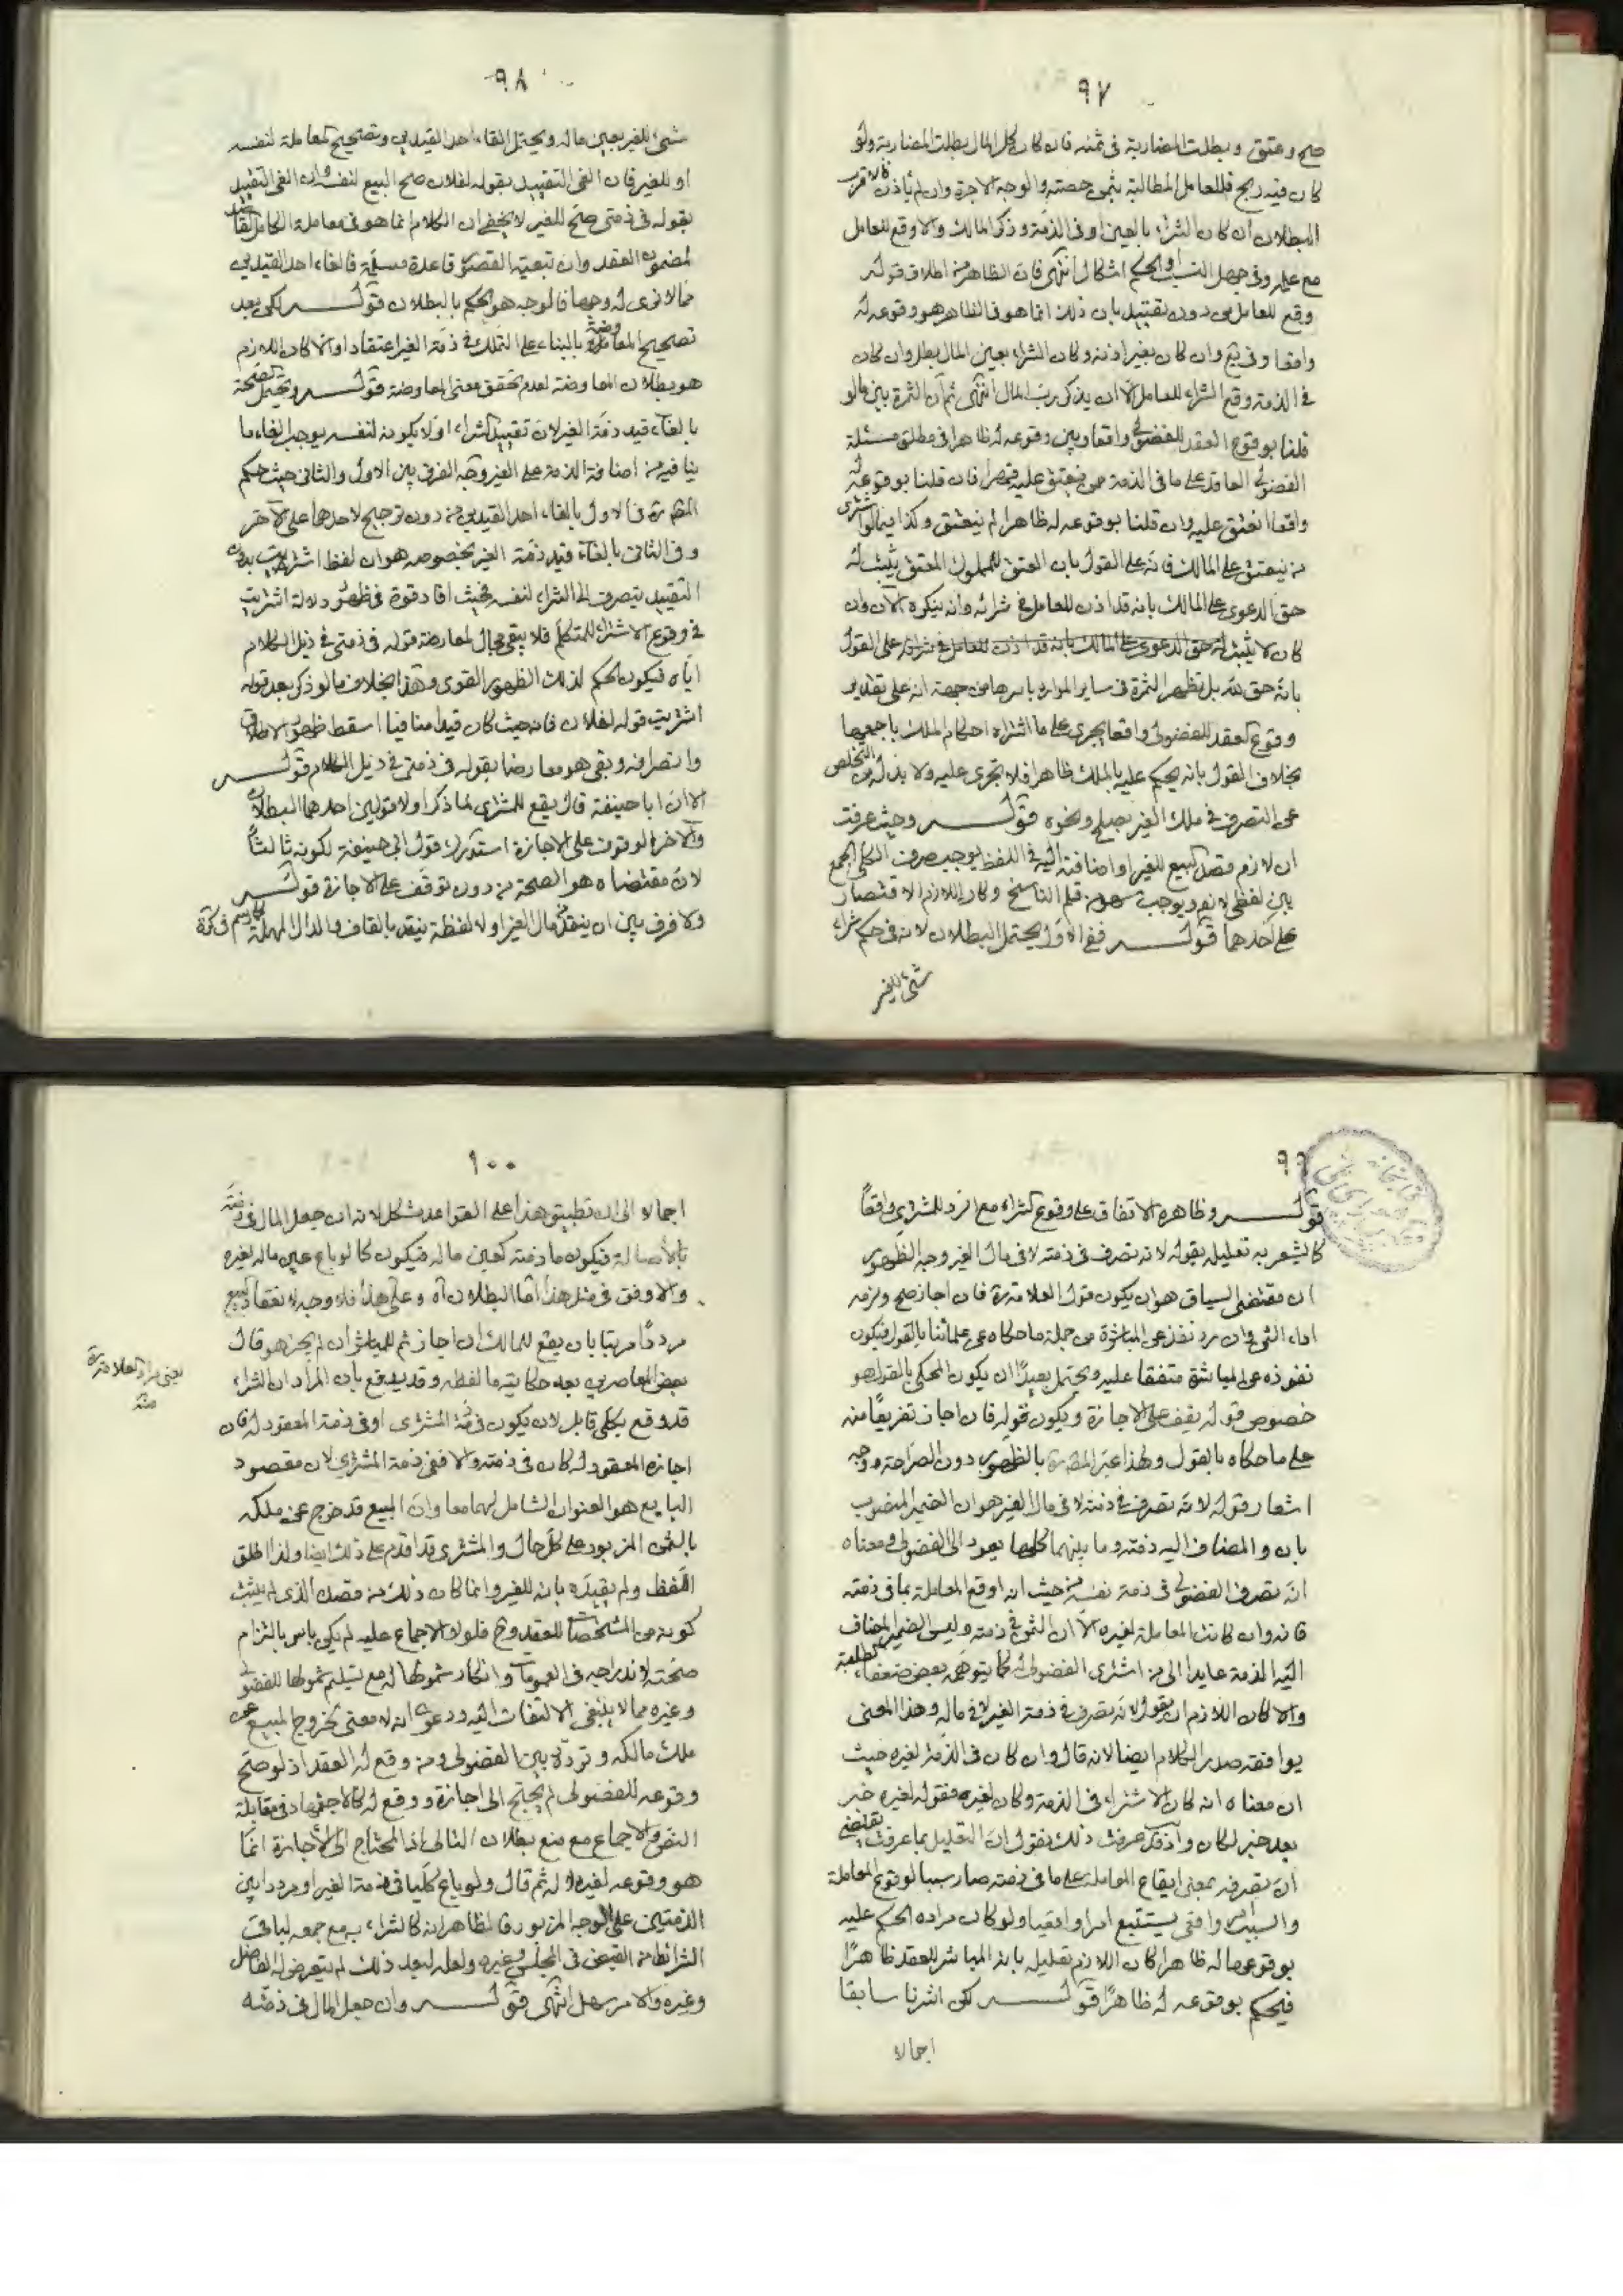 ٩٧
صح وعتق وبطلت المضاربة فى ثمنه فان كان كل المال بطلت المضاربة ولو
كان فيه ربح فللعامل المطالبة بثمن حصته والوجه الاجرة وان لم ياذن فالاقرب
البطلان ان كان الشراء بالعين او فى الذمة وذكر المالك والا وقع للعامل
مع علمه وفى جهل النسب او الحكم اشكال انتهى فان الظاهر من اطلاق قوله
وقع للعامل من دون تقييد بان ذلك انما هو فى الظاهر هو وقوعه له
واقعا وفى يع وان كان بغير اذنه وكان الشراء بعين المال بطل وان كان
فى الذمة وقع الشراء للعامل الا ان يذكر رب المال انتهى ثم ان الثمرة بين ما لو
قلنا بوقوع العقد للفضولى واقعا وبين وقوعه له ظاهرا فى مطلق مسئلة
الفضولى العاقد على ما فى الذمة فان قلنا بوقوعه له
واقعا انعتق عليه وان قلنا بوقوعه له ظاهرا لم ينعتق وكذا فيما لو اشترى
من ينعتق على المالك فانه على القول بان العتق للمملوك المعتق يثبت له
حق الدعوى على المالك بانه قد اذن للعامل فى شرائه وانه ينكره الآن وان
كان لا يثبت له حق الدعوى على المالك بانه قد اذن للعامل فى شرائه على القول
بانه حق لله بل تظهر الثمرة فى ساير الموارد باسرها من جهة انه على تقدير
وقوع العقد للفضولى واقعا يجرى على ما اشتراه احكام الملك باجمعها
بخلاف القول بانه يحكم عليه بالملك ظاهرا فلا تجرى عليه ولا بد له من التخلص
عن التصرف فى ملك الغير بصلح ونحوه قوله وحيث عرفت
ان لازم قصد البيع للغير او اضافته اليه فى اللفظ يوجب صرف الكلى الجمع
بين لفظى لازم ويوجب سهو من قلم الناسخ وكان اللازم الاقتصار
على احدهما قوله ففى الاول يحتمل البطلان لانه فى حكم شراء
شئ للغير
٩٨
شئ للغير بعين ماله ويحتمل القاء احد القيدين وتصحيح المعاملة لنفسه
او للغير فان الغى التقييد بقوله لفلان صح البيع لنفسه وان الغى التقييد
بقوله فى ذمتى صح للغير لا يخفى ان الكلام انما هو فى معاملة الكامل القاصد
لمضمون العقد وان تبعية القصد قاعدة مسلمة فالغاء احد القيدين
مما لا نرى له وجها فالوجه هو الحكم بالبطلان قوله لكن بعد
تصحيح المعاوضة بالبناء على التملك فى ذمة الغير اعتقادا والا كان اللازم
هو بطلان المعاوضة لعدم تحقق معنى المعاوضة قوله ويحتمل الصحة
بالغاء قيد ذمة الغير لان تقييد الشراء اولا بكونه لنفسه يوجب الغاء ما
ينافيه من اضافة الذمة على الغير وجه الفرق بين الاول والثانى حيث حكم
المص ره فى الاول بالغاء احد القيدين من دون ترجيح لاحدهما على الآخر
وفى الثانى بالغاء قيد ذمة الغير بخصوصه هو ان لفظ اشتريت بدون
التقييد يتصرف الى الشراء لنفسه بحيث افاد قوة فى ظهور دلالة اشتريت
فى وقوع الاشتراء للمتكلم فلا يبقى مجال لمعارضة قوله فى ذمتى فى ذيل الكلام
اياه فيكون الحكم لذلك الظهور القوى وهذا بخلاف ما لو ذكر بعد قوله
اشتريت قوله لفلان فانه حيث كان قيدا منافيا اسقط ظهور الاطلاق
وانصرافه وبقى هو معارضا بقوله فى ذمتى فى ذيل الكلام قوله
الا ان ابا حنيفة قال يقع للمشترى لما ذكر اولا قولين احدهما البطلان
والآخر الوقوف على الاجازة استدرك قول ابى حنيفة لكونه ثالثا
لان مقتضاه هو الصحة من دون توقف على الاجازة قوله
ولا فرق بين ان ينقد من مال الغير او لا لفظة ينقد بالقاف والدال المهملة
٩٩
قوله وظاهره الاتفاق على وقوع الشراء مع الرد للمشترى واقعاً
كما يشعر به تعليله بقوله لانه تصرف فى ذمته لا فى مال الغير وجه الظهور
ان مقتضى السياق هو ان يكون قول العلامة ره فان اجاز صح ولزمه
اداء الثمن وان رد نفذ عن المباشرة من جملة ما حكاه عن علمائنا بالقول فيكون
نفوذه عن المباشرة متفقا عليه ويحتمل بعيدًا ان يكون المحكى بالقول هو
خصوص قوله يقف على الاجازة ويكون قوله فان اجاز تفريعًا منه
على ما حكاه بالقول ولهذا عبر المص ره بالظهور دون الصراحة ووجه
اشعار قوله لانه تصرف فى ذمته لا فى مال الغير هو ان الضمير المنصوب
بان والمضاف اليه ذمته وما بينهما كلها يعود الى الفضولى ومعناه
انه تصرف الفضولى فى ذمة نفسه من حيث انه اوقع المعاملة بما فى ذمته
فانه وان كانت المعاملة لغيره الا ان الثمن فى ذمته وليس الضمير المضاف
اليه الذمة عايدا الى من اشترى الفضولى له كما يتوهمه بعض ضعفاء الطلبة
والا كان اللازم ان يقول لانه تصرف فى ذمة الغير لا فى ماله وهذا المعنى
يوافقه صدر الكلام ايضا لانه قال وان كان فى الذمة لغيره حيث
ان معناه انه كان الاشتراء فى الذمة وكان لغيره فقوله لغيره خبر
بعد خبر لكان واذ قد عرفت ذلك نقول ان التعليل بما عرفت يقتضى
ان تصرفه بمعنى ايقاع المعاملة على ما فى ذمته صار سببا لوقوع المعاملة
والسبب امر واقعى يستتبع امرا واقعيا ولو كان مراده الحكم عليه
بوقوعها له ظاهرا كان اللازم تعليله بانه المباشر للعقد ظاهرًا
فيحكم بوقوعه له ظاهرًا قوله لكن اشرنا سابقا
اجمالا
١٠٠
اجمالا الى ان تطبيق هذا على القواعد مشكل لانه ان جعل المال فى ذمته
بالاصالة فيكون ما ذمته كعين ماله فيكون كما لو باع عين ماله لغيره
والاوفق فى مثل هذا اما البطلان آه وعلى هذا فلا وجه لانعقاد البيع
مرددًا مرتبا بان يقع للمالك ان اجاز ثم للمباشر ان لم يجز هو قال
بعض المعاصرين بعد حكايته ما لفظه وقد يدفع بان المراد ان الشراء
قد وقع بكلى قابل لان يكون فى ذمة المشترى او فى ذمة المعقود له فان
اجازه المعقود له كان فى ذمته والا ففى ذمة المشترى لان مقصود
البايع هو العنوان الشامل لهما معا وان المبيع قد خرج عن ملكه
بالثمن المزبور على كل حال والمشترى قد اقدم على ذلك ايضا ولذا اطلق
اللفظ ولم يقيده بانه للغير وانما كان ذلك من قصده الذى لم يثبت
كونه من المشخصات للعقد وح فلولا الاجماع عليه لم يكن باس بالتزام
صحته لاندراجه فى العمومات وانكار شمولها له مع تسليم شمولها للفضولى
وغيره مما لا ينبغى الالتفات اليه ودعوى انه لا معنى لخروج المبيع عن
ملك مالكه وتردده بين الفضولى ومن وقع له العقد اذ لو صح
وقوعه للفضولى لم يحتج الى اجازة ووقع له كالاجتهاد فى مقابلة
النص والاجماع مع منع بطلان التالى اذ المحتاج الى الاجازة انما
هو وقوعه لغيره لا له ثم قال ولو باع كليا فى ذمة الغير او مرددا بين
الذمتين على الوجه المزبور فالظاهر انه كالشراء به مع جمعه لباقى
الشرائط من القبض فى المجلس وغيره ولعله لبعد ذلك لم يتعرض له الفاضل
وغيره والامر سهل انتهى قوله وان جعل المال فى ذمته
يعنى مراد العلامة ره
منه